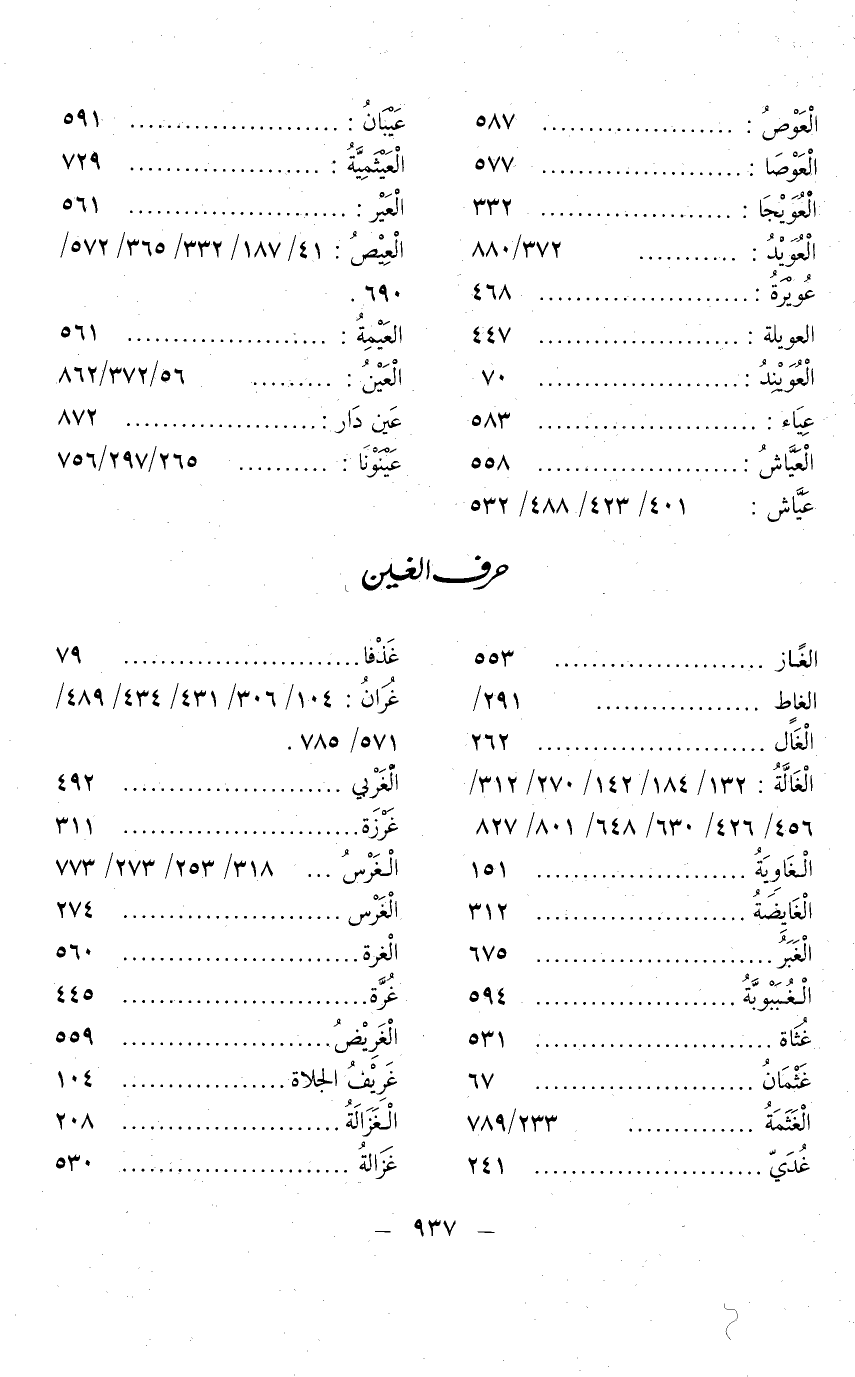 الْعَوْصُ : ..................... ٥٨٧
الْعَوْصَا : ...................... ٥٧٧
الْعُوَيْجَا : ..................... ٣٣٢
الْعُوَيْدُ : ........... ٨٨٠/٣٧٢
عُوَيْرَةُ : ....................... ٤٦٨
العويلة : ...................... ٤٤٧
الْعُوَيْنِدُ : ...................... ٧٠
عِيَاء : ........................ ٥٨٣
الْعَيَّاشُ : ...................... ٥٥٨
عَيَّاش : ٤٠١/ ٤٢٣/ ٤٨٨/ ٥٣٢
عَيْبَانُ : ....................... ٥٩١
الْعَيْثَمِيَّةُ : ..................... ٧٢٩
الْعَيْر : ........................ ٥٦١
الْعِيْصُ : ٤١/ ١٨٧/ ٣٣٢/ ٣٦٥/ ٥٧٢/
٦٩٠ .
العَيْمِةُ : ...................... ٥٦١
الْعَيْنُ : ......... ٨٦٢/٣٧٢/٥٦
عَين دَار : ..................... ٨٧٢
عَيْنُوْنَا : .......... ٧٥٦/٢٩٧/٢٦٥
حرف الغين
الغَاز ....................... ٥٥٣
الغاط .................. ٢٩١/
الْغَال ......................... ٢٦٢
الْغَالَّةُ : ١٣٢/ ١٨٤/ ١٤٢/ ٢٧٠/ ٣١٢/
٤٥٦/ ٤٢٦/ ٦٣٠/ ٦٤٨/ ٨٠١/ ٨٢٧
الْغَاوِيَةُ ....................... ١٥١
الْغَايِضَةُ ...................... ٣١٢
الْغَبَرُ .......................... ٦٧٥
الْغُبَيْبُوبَّةُ ...................... ٥٩٤
غُثَاة .......................... ٥٣١
غَثْمَانُ ........................ ٦٧
الْغَثَمَةُ .............. ٧٨٩/٢٣٣
غُدَيّ ......................... ٢٤١
غَذْفَا .......................... ٧٩
غُرَانُ : ١٠٤/ ٣٠٦/ ٤٣١/ ٤٣٤/ ٤٨٩/
٥٧١/ ٧٨٥ .
الْغَرْبي ........................ ٤٩٢
غَرْزَة .......................... ٣١١
الْغَرْسُ ... ٣١٨/ ٢٥٣/ ٢٧٣/ ٧٧٣
الْغَرْس ........................ ٢٧٤
الْغرة .......................... ٥٦٠
غُرَّة ........................... ٤٤٥
الْغَرِيْضُ ....................... ٥٥٩
غَرِيْفُ الجلاة .................. ١٠٤
الْغَزَالَةُ ........................ ٢٠٨
غَزَالةُ ......................... ٥٣٠
– ٩٣٧ –